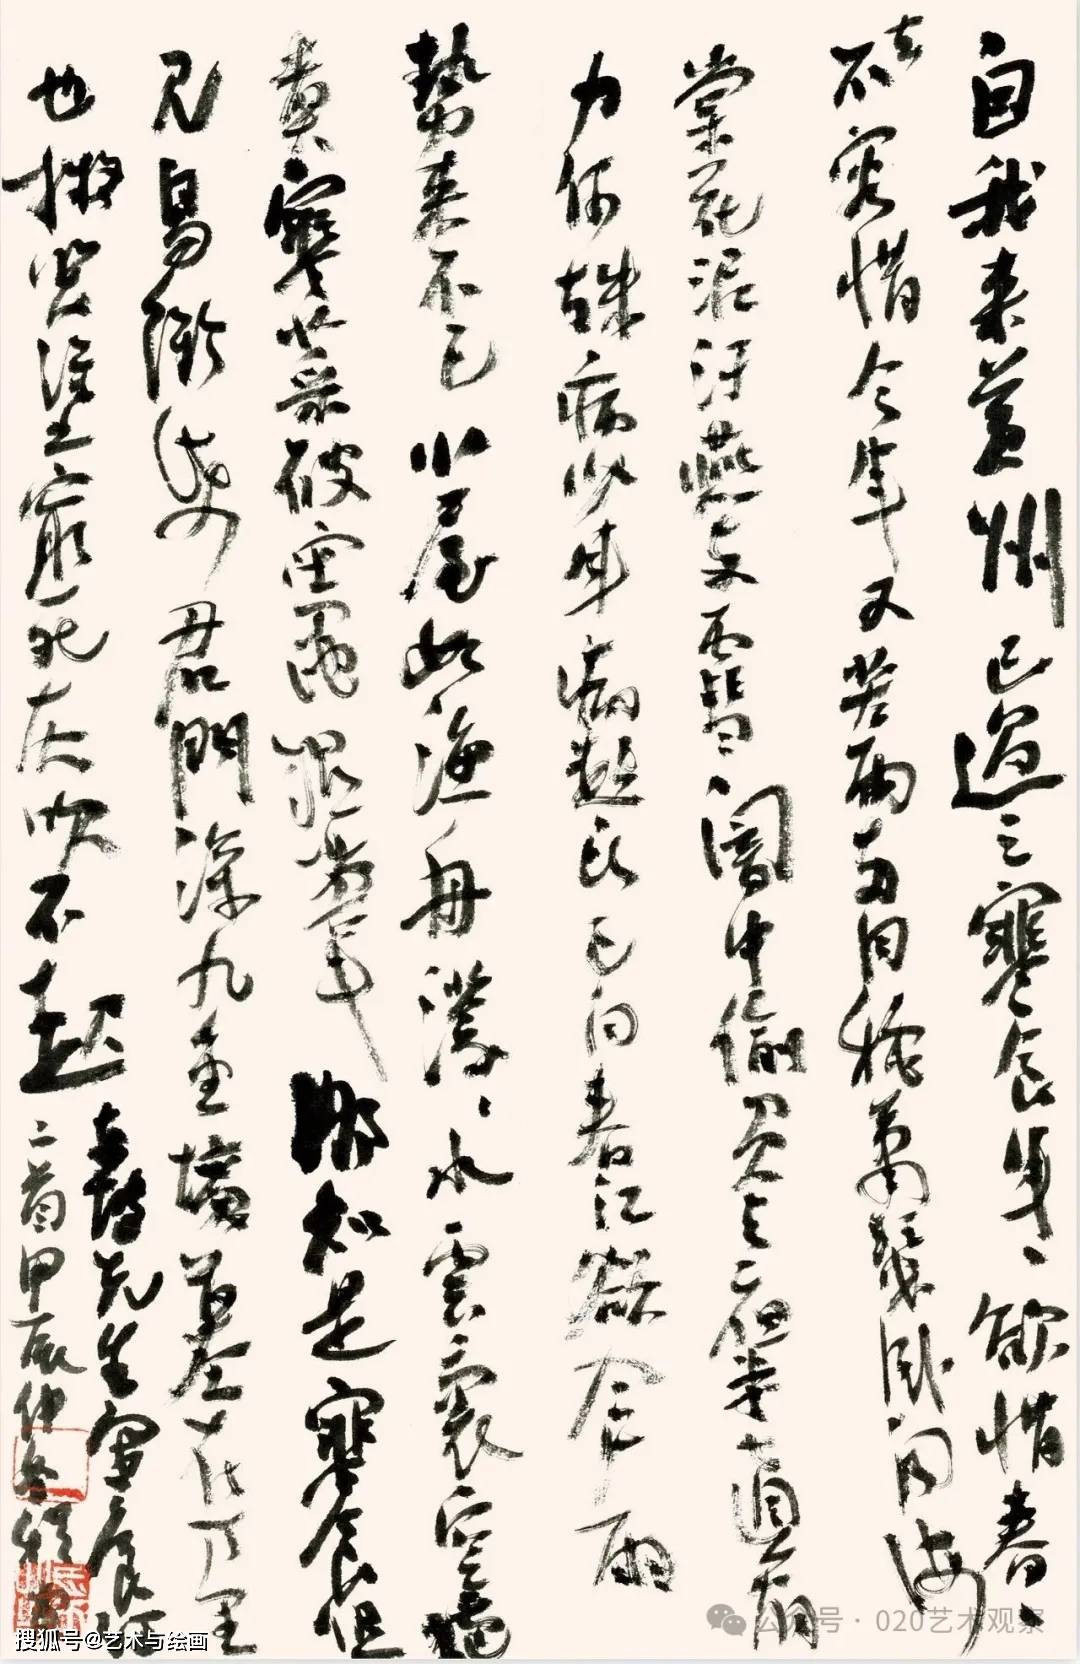 自我来黄州已過三寒食年、欲惜春、
去不容惜今年又苦雨兩月秋蕭瑟卧聞海
棠花泥汙燕支雪闇中偷負去夜半真有
力何殊病少年病起頭已白春江欲入户雨
勢来不已小屋如漁舟濛、水雲裏空庖
煮寒菜破竈燒濕葦那知是寒食但
見烏銜帋君門深九重墳墓在万里
也擬哭塗窮死灰吹不起
東坡先生寒食詩
二首甲辰仲春
公众号·020艺术观察
搜狐号@艺术与绘画